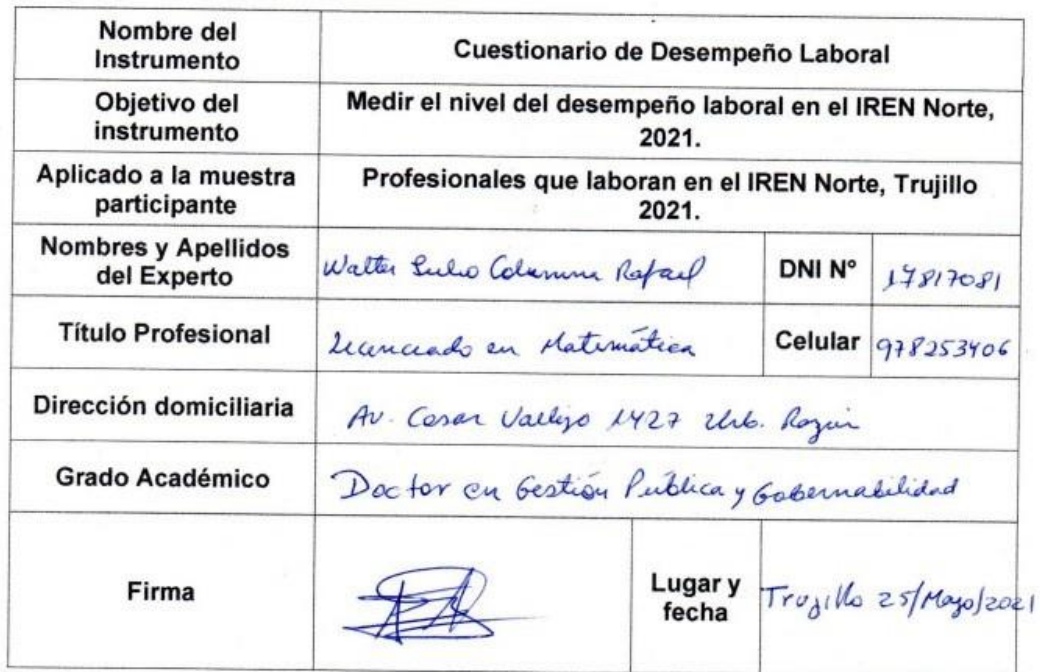 Nombre del
Instrumento
Cuestionario de Desempeño Laboral
Objetivo del
instrumento
Medir el nivel del desempeño laboral en el IREN Norte,
2021.
Aplicado a la muestra
participante
Profesionales que laboran en el IREN Norte, Trujillo
2021.
Nombres y Apellidos
del Experto
Walter Rafael
DNI N°
17817081
Título Profesional
Licenciado en Matemática
Celular
978253406
Dirección domiciliaria
Av. Cesar Vallejo 1427 Urb.
Grado Académico
Doctor en Gestión Pública y Gobernabilidad
Firma
Lugar y
fecha
Trujillo 25/Mayo/2021